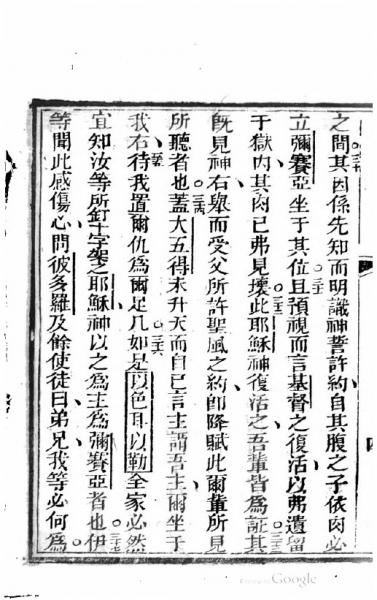 之間其因係先知而明識神誓許約自其腹之子依肉必
立彌賽亞坐于其位且預視而言基督之復活以弗遺留
于獄內其肉已弗見壞此耶穌神復活之吾輩皆為証其
既見神右舉而受父所許聖風之約即降賦此爾輩所見
所聽者也蓋大五得未升天而自已言主謂吾主爾坐于
我右待我置爾仇為爾足几如是以色耳以勒全家必然
宜知汝等所釘十字架之耶穌神以之為主為彌賽亞者也伊
等聞此感傷心問彼多羅及餘使徒曰弟兄我等必何為
Google